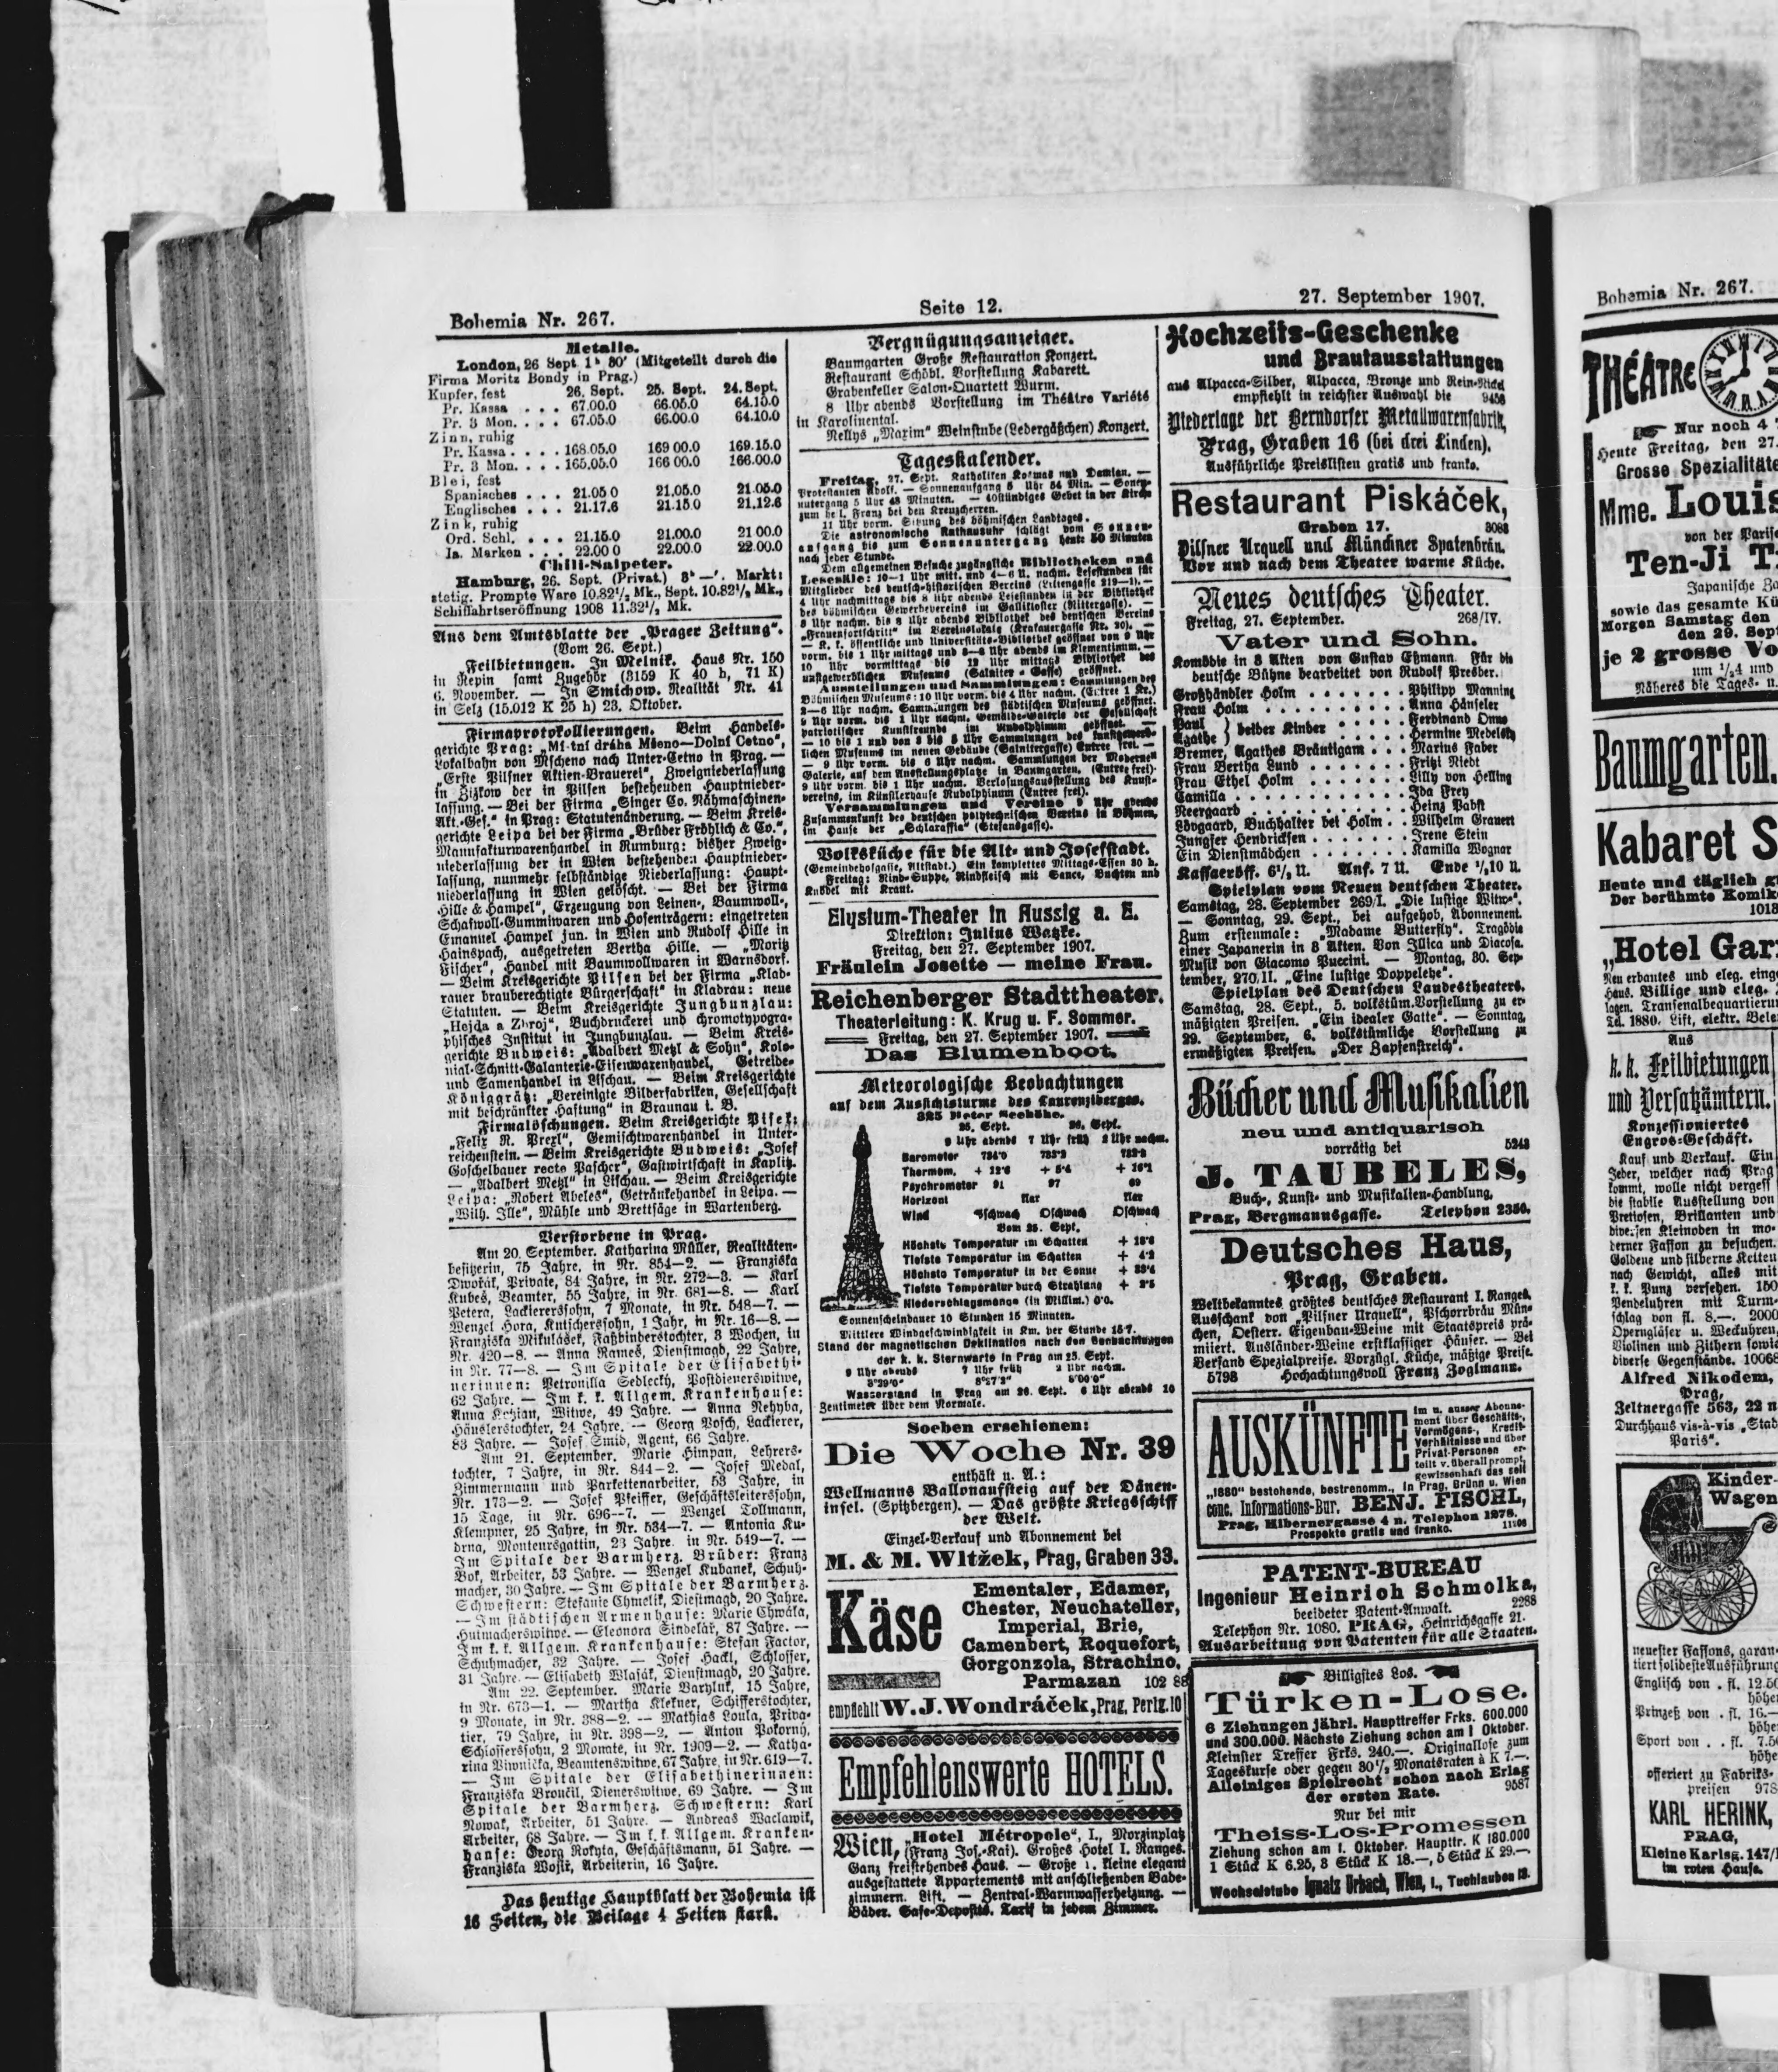 Bohemia Nr. 267.
Seite 12.
27. September 1907.
Metalle.
London, 26 Sept 1h 30' (Mitgeteilt durch die
Firma Moritz Bondy in Prag.)
Kupfer, fest 26. Sept. 25. Sept. 24. Sept.
Pr. Kassa . . . 67.00.0 66.05.0 64.10.0
Pr. 3 Mon. . . . 67.05.0 66.00.0 64.10.0
Zinn, ruhig
Pr. Kassa . . . . 168.05.0 169 00.0 169.15.0
Pr. 3 Mon. . . . 165.05.0 166 00.0 166.00.0
Blei, fest
Spanisches . . . 21.05 0 21.05.0 21.05.0
Englisches . . . 21.17.6 21.15 0 21.12.6
Zink, ruhig
Ord. Schl. . . . 21.15.0 21.00.0 21 00.0
Ia. Marken . . . 22.00 0 22.00.0 22.00.0
Chili-Salpeter.
Hamburg, 26. Sept. (Privat.) Markt:
stetig. Prompte Ware 10.82½ Mk., Sept. 10.82½ Mk.,
Schiffahrtseröffnung 1908 11.32½ Mk.
Aus dem Amtsblatte der „Prager Zeitung“.
(Vom 26. Sept.)
Feilbietungen. In Melnik. Haus Nr. 150
in Repin samt Zugehör (3159 K 40 h, 71 K)
6. November. — In Smichow. Realität Nr. 41
in Selz (15.012 K 25 h) 23. Oktober.
Firmaprotokollierungen. Beim Handels-
gerichte Prag: „Místní dráha Mšeno—Dolní Cetno“,
Lokalbahn von Mscheno nach Unter-Cetno in Prag. —
„Erste Pilsner Aktien-Brauerei“, Zweigniederlassung
in Žižkow der in Pilsen bestehenden Hauptnieder-
lassung. — Bei der Firma „Singer Co. Nähmaschinen-
Akt.-Ges.“ in Prag: Statutenänderung. — Beim Kreis-
gerichte Leipa bei der Firma „Brüder Fröhlich & Co.“,
Manufakturwarenhandel in Rumburg: bisher Zweig-
niederlassung der in Wien bestehenden Hauptnieder-
lassung, nunmehr selbständige Niederlassung: Haupt-
niederlassung in Wien gelöscht. — Bei der Firma
„Hille & Hampel“, Erzeugung von Leinen-, Baumwoll-,
Schafwoll-Gummiwaren und Hosenträgern: eingetreten
Emanuel Hampel jun. in Wien und Rudolf Hille in
Hainspach, ausgetreten Bertha Hille. — „Moritz
Fischer“, Handel mit Baumwollwaren in Warnsdorf.
— Beim Kreisgerichte Pilsen bei der Firma „Klad-
rauer brauberechtigte Bürgerschaft“ in Kladrau: neue
Statuten. — Beim Kreisgerichte Jungbunzlau:
„Hejda a Zbroj“, Buchdruckerei und chromotypogra-
phisches Institut in Jungbunzlau. — Beim Kreis-
gerichte Budweis: „Adalbert Metzl & Sohn“, Kolo-
nial-Schnitt-Galanterie-Eisenwarenhandel, Getreide-
und Samenhandel in Lischau. — Beim Kreisgerichte
Königgrätz: „Vereinigte Bilderfabriken, Gesellschaft
mit beschränkter Haftung“ in Braunau i. B.
Firmalöschungen. Beim Kreisgerichte Pisek:
„Felix R. Prexl“, Gemischtwarenhandel in Unter-
reichenstein. — Beim Kreisgerichte Budweis: „Josef
Goschelbauer recte Pascher“, Gastwirtschaft in Kaplitz.
— „Adalbert Metzl“ in Lischau. — Beim Kreisgerichte
Leipa: „Robert Abeles“, Getränkehandel in Leipa. —
„Wilh. Ille“, Mühle und Brettsäge in Wartenberg.
Verstorbene in Prag.
Am 20. September. Katharina Müller, Realitäten-
besitzerin, 75 Jahre, in Nr. 854—2. — Franziska
Dwořák, Private, 84 Jahre, in Nr. 272—3. — Karl
Kubes, Beamter, 55 Jahre, in Nr. 681—8. — Karl
Petera, Lackierersohn, 7 Monate, in Nr. 548—7. —
Wenzel Hora, Kutschersohn, 1 Jahr, in Nr. 16—8. —
Franziska Mikulášek, Faßbinderstochter, 3 Wochen, in
Nr. 420—8. — Anna Rameš, Dienstmagd, 22 Jahre,
in Nr. 77—8. — Im Spitale der Elisabethi-
nerinnen: Petronilla Sedlecky, Postdienerswitwe,
62 Jahre. — Im k. k. Allgem. Krankenhause:
Anna Witwe, 49 Jahre. — Anna Rehyba,
Häuslerstochter, 24 Jahre. — Georg Posch, Lackierer,
83 Jahre. — Josef Smid, Agent, 66 Jahre.
Am 21. September. Marie Himpan, Lehrers-
tochter, 7 Jahre, in Nr. 844—2. — Josef Medal,
Zimmermann und Parkettenarbeiter, 53 Jahre, in
Nr. 173—2. — Josef Pfeiffer, Geschäftsleitersohn,
15 Tage, in Nr. 696—7. — Wenzel Tollmann,
Klempner, 25 Jahre, in Nr. 534—7. — Antonia Ku-
drna, Monteursgattin, 23 Jahre in Nr. 549—7. —
Im Spitale der Barmherz. Brüder: Franz
Bok, Arbeiter, 53 Jahre. — Wenzel Kubanek, Schuh-
macher, 30 Jahre. — Im Spitale der Barmherz.
Schwestern: Stefanie Chmelik, Diestmagd, 20 Jahre.
— Im städtischen Armenhause: Marie Chwala,
Hutmacherswitwe. — Eleonora Sindelář, 87 Jahre. —
Im k. k. Allgem. Krankenhause: Stefan Factor,
Schuhmacher, 32 Jahre. — Josef Hackl, Schlosser,
31 Jahre. — Elisabeth Wlasák, Dienstmagd, 20 Jahre.
Am 22. September. Marie Baryluk, 15 Jahre,
in Nr. 673—1. — Martha Klekner, Schifferstochter,
9 Monate, in Nr. 388—2. — Mathias Loula, Priva-
tier, 79 Jahre, in Nr. 398—2. — Anton Pokorny,
Schlossersohn, 2 Monate, in Nr. 1909—2. — Katha-
rina Piwnička, Beamtenswitwe, 67 Jahre, in Nr. 619—7.
— Im Spitale der Elisabethinerinnen:
Franziska Broučil, Dienerswitwe, 69 Jahre. — Im
Spitale der Barmherz. Schwestern: Karl
Nowak, Arbeiter, 51 Jahre. — Andreas Waclawik,
Arbeiter, 68 Jahre. — Im k. k. Allgem. Kranken-
hause: Georg Rokyta, Geschäftsmann, 51 Jahre. —
Franziska Arbeiterin, 16 Jahre.
Das heutige Hauptblatt der Bohemia ist
16 Seiten, die Beilage 4 Seiten stark.
Vergnügungsanzeiger.
Baumgarten Große Restauration Konzert.
Restaurant Schöbl. Vorstellung Kabarett.
Grabenkeller Salon-Quartett Wurm.
8 Uhr abends Vorstellung im Théâtre Variété
in Karolinental.
Nellys „Maxim“ Weinstube (Ledergäßchen) Konzert.
Tageskalender.
Freitag, 27. Sept. Katholiken Kosmas und Damian. —
Protestanten Adolf. — Sonnenaufgang 5 Uhr 54 Min. — Sonne-
nuntergang 5 Uhr 43 Minuten. — 40stündiges Gebet in der Kirche
zum hel. Franz bei den Kreuzherren.
11 Uhr vorm. Sitzung des böhmischen Landtages.
Die astronomische Rathausuhr schlägt vom Sonnen-
aufgang bis zum Sonnenuntergang heute 50 Minuten
nach jeder Stunde.
Dem allgemeinen Besuche zugängliche Bibliotheken und
Lesesäle: 10—1 Uhr mitt. und 4—6 U. nachm. Lesestunden für
Mitglieder des deutsch-historischen Vereins (Liliengasse 219—1). —
4 Uhr nachmittags bis 8 Uhr abends Lesestunden in der Bibliothek
des böhmischen Gewerbevereins im Gallikloster (Rittergasse). —
8 Uhr nachm. bis 8 Uhr abends Bibliothek des deutschen Vereins
„Frauenfortschritt“ im Vereinslokale (Krakauergasse Nr. 20). —
— K. k. öffentliche und Universitäts-Bibliothek geöffnet von 9 Uhr
vorm. bis 1 Uhr mittags und 3—8 Uhr abends im Klementinum. —
10 Uhr vormittags bis 12 Uhr mittags Bibliothek des
kunstgewerblichen Museums (Salniter-Gasse) geöffnet.
Ausstellungen und Sammlungen: Sammlungen des
Böhmischen Museums: 10 Uhr vorm. bis 4 Uhr nachm. (Entree 1 Kr.)
2—6 Uhr nachm. Sammlungen des städtischen Museums geöffnet.
9 Uhr vorm. bis 1 Uhr nachm. Gemälde-Galerie der Gesellschaft
patriotischer Kunstfreunde im Rudolphinum geöffnet. —
— 10 bis 1 und von 3 bis 5 Uhr Sammlungen des kunstgewerb-
lichen Museums im neuen Gebäude (Salnitergasse) Entree frei. —
— 9 Uhr vorm. bis 6 Uhr nachm. Sammlungen der Moderne-
Galerie, auf dem Ausstellungsplatze in Baumgarten. (Entree frei).
9 Uhr vorm. bis 1 Uhr nachm. Verlosungsausstellung des Kunst-
vereins, im Künstlerhause Rudolphinum (Entree frei).
Versammlungen und Vereine 9 Uhr abends
Zusammenkunft des deutschen polytechnischen Vereins in Böhmen,
im Hause der „Schlaraffia“ (Stefansgasse).
Volksküche für die Alt- und Josefstadt.
(Gemeindehofgasse, Altstadt.) Ein komplettes Mittags-Essen 30 h.
Freitag: Rind-Suppe, Rindfleisch mit Sauce, Buchten und
Knödel mit Kraut.
Elysium-Theater in Aussig a. E.
Direktion: Julius Watzke.
Freitag, den 27. September 1907.
Fräulein Josette — meine Frau.
Reichenberger Stadttheater.
Theaterleitung: K. Krug u. F. Sommer.
Freitag, den 27. September 1907.
Das Blumenboot.
Meteorologische Beobachtungen
auf dem Aussichtsturme des Laurenziberges.
325 Meter Seehöhe.
25. Sept. 26. Sept.
9 Uhr abends 7 Uhr früh 2 Uhr nachm.
Barometer
Thermom.
Psychrometer 91 97 69
Horizont klar klar
Wind
Vom 25. Sept.
Höchste Temperatur im Schatten
Tiefste Temperatur im Schatten
Höchste Temperatur in der Sonne
Tiefste Temperatur durch Strahlung
Niederschlagsmenge (in Millim.) 0·0.
Sonnenscheindauer 10 Stunden 15 Minuten.
Mittlere Windgeschwindigkeit in Km. per Stunde 15·7.
Stand der magnetischen Deklination nach den Beobachtungen
der k. k. Sternwarte in Prag am 25. Sept.
9 Uhr abends 7 Uhr früh 2 Uhr nachm.
Wasserstand in Prag am 26. Sept. 6 Uhr abends 10
Zentimeter über dem Normale.
Soeben erschienen:
Die Woche Nr. 39
enthält u. A.:
Wellmanns Ballonaufstieg auf der Dänen-
insel. (Spitzbergen). — Das größte Kriegsschiff
der Welt.
Einzel-Verkauf und Abonnement bei
M. & M. Witžek, Prag, Graben 33.
Käse
Ementaler, Edamer,
Chester, Neuchateller,
Imperial, Brie,
Camenbert, Roquefort,
Gorgonzola, Strachino,
Parmazan 102 88
empfiehlt W. J. Wondráček, Prag, Perlg. 10
Empfehlenswerte HOTELS.
Wien, „Hotel Métropole“, I., Morzinplatz
(Franz Jos.-Kai). Großes Hotel I. Ranges.
Ganz freistehendes Haus. — Große u. kleine elegant
ausgestattete Appartements mit anschließenden Bade-
zimmern. Lift. — Zentral-Warmwasserheizung. —
Bäder. Safe-Deposits. Tarif in jedem Zimmer.
Hochzeits-Geschenke
und Brautausstattungen
aus Alpacca-Silber, Alpacca, Bronze und Rein-Nickel
empfiehlt in reichster Auswahl die 9456
Niederlage der Berndorfer Metallwarenfabrik,
Prag, Graben 16 (bei drei Linden).
Ausführliche Preislisten gratis und franko.
Restaurant Piskáček,
Graben 17. 3088
Pilsner Urquell und Münchner Spatenbräu.
Vor und nach dem Theater warme Küche.
Neues deutsches Theater.
Freitag, 27. September. 268/IV.
Vater und Sohn.
Komödie in 3 Akten von Gustav Eßmann. Für die
deutsche Bühne bearbeitet von Rudolf Presber.
Großhändler Holm . . . . . . . Philipp Manning
Frau Holm . . . . . . . . . . Anna Hänseler
Paul } beider Kinder . . . . . Ferdinand Onno
Agathe } Hermine Medelsky
Bremer, Agathes Bräutigam . . . Marius Faber
Frau Bertha Lund . . . . . . . Fritzi Niedt
Frau Ethel Holm . . . . . . . Lilly von Helling
Camilla . . . . . . . . . . . Ida Frey
Neergaard . . . . . . . . . . Heinz Pabst
Lövgaard, Buchhalter bei Holm . . Wilhelm Grauert
Jungfer Hendricksen . . . . . . Irene Stein
Ein Dienstmädchen . . . . . . . Kamilla Wognar
Kassaeröff. 6½ U. Anf. 7 U. Ende ½10 U.
Spielplan vom Neuen deutschen Theater.
Samstag, 28. September 269/I. „Die lustige Witwe“.
— Sonntag, 29. Sept., bei aufgehob. Abonnement.
Zum erstenmale: „Madame Butterfly“. Tragödie
einer Japanerin in 3 Akten. Von Illica und Diacosa.
Musik von Giacomo Puccini. — Montag, 30. Sep-
tember, 270.II. „Eine lustige Doppelehe“.
Spielplan des Deutschen Landestheaters.
Samstag, 28. Sept., 5. volkstüm. Vorstellung zu er-
mäßigten Preisen. „Ein idealer Gatte“. — Sonntag,
29. September, 6. volkstümliche Vorstellung zu
ermäßigten Preisen. „Der Zapfenstreich“.
Bücher und Musikalien
neu und antiquarisch
vorrätig bei 5243
J. TAUBELES,
Buch-, Kunst- und Musikalien-Handlung,
Prag, Bergmannsgasse. Telephon 2350.
Deutsches Haus,
Prag, Graben.
Weltbekanntes, größtes deutsches Restaurant I. Ranges.
Ausschank von „Pilsner Urquell“, Pschorrbräu Mün-
chen, Oesterr. Eigenbau-Weine mit Staatspreis prä-
miiert. Ausländer-Weine erstklassiger Häuser. — Bei
Versand Spezialpreise. Vorzügl. Küche, mäßige Preise.
5798 Hochachtungsvoll Franz Zoglmann.
AUSKÜNFTE
im u. ausser Abonne-
ment über Geschäfts-,
Vermögens-, Kredit-
Verhältnisse und über
Privat-Personen er-
teilt v. überall prompt,
gewissenhaft das seit
„1880“ bestehende, bestrenomm., in Prag, Brünn u. Wien
conc. Informations-Bur. BENJ. FISCHL,
Prag, Hibernergasse 4 n. Telephon 1278.
Prospekte gratis und franko. 11206
PATENT-BUREAU
Ingenieur Heinrich Schmolka,
beeideter Patent-Anwalt. 2288
Telephon Nr. 1080. PRAG, Heinrichsgasse 21.
Ausarbeitung von Patenten für alle Staaten.
Billigstes Los.
Türken-Lose.
6 Ziehungen jährl. Haupttreffer Frks. 600.000
und 300.000. Nächste Ziehung schon am 1 Oktober.
Kleinster Treffer Frks. 240.—. Originallose zum
Tageskurse oder gegen Monatsraten à K 7.—.
Alleiniges Spielrecht schon nach Erlag
der ersten Rate. 9587
Nur bei mir
Theiss-Los-Promessen
Ziehung schon am 1. Oktober. Haupttr. K 180.000
1 Stück K 6.25, 3 Stück K 18.—, 5 Stück K 29.—.
Wechselstube Ignatz Urbach, Wien, I., Tuchlauben 13.
Bohemia Nr. 267.
THÉATRE
Nur noch 4
Heute Freitag, den 27.
Grosse Spezialitäte
Mme. Louis
von der Parise
Ten-Ji T
Japanische Za
sowie das gesamte Kü
Morgen Samstag den
den 29. Sept
je 2 grosse Vo
um ½4 und
Näheres die Tages- u.
Baumgarten.
Kabaret S
Heute und täglich g
Der berühmte Komik
1018
„Hotel Gar
Neu erbautes und eleg. einge
Haus. Billige und eleg.
lagen. Transenalbequartierun
Tel. 1880. Lift, elektr. Bele
Aus
k. k. Feilbietungen
und Versatzämtern.
Konzessioniertes
Engros-Geschäft.
Kauf und Verkauf. Ein
Jeder, welcher nach Prag
kommt, wolle nicht vergess
die stabile Ausstellung von
Pretiosen, Brillanten und
diversen Kleinoden in mo-
derner Fasson zu besuchen.
Goldene und silberne Ketten
nach Gewicht, alles mit
k. k. Punz versehen. 150
Pendeluhren mit Turm-
schlag von fl. 8.—. 2000
Operngläser u. Weckuhren,
Violinen und Zithern sowie
diverse Gegenstände. 10068
Alfred Nikodem,
Prag,
Zeltnergasse 563, 22 n
Durchhaus vis-à-vis „Stad
Paris“.
Kinder-
Wagen
neuester Fassons, garan-
tiert solideste Ausführung
Englisch von . fl. 12.50
höher
Prinzeß von . fl. 16.—
höher
Sport von . . fl. 7.50
höher
offeriert zu Fabriks-
preisen 978
KARL HERINK,
PRAG,
Kleine Karlsg. 147/I
im roten Hause.